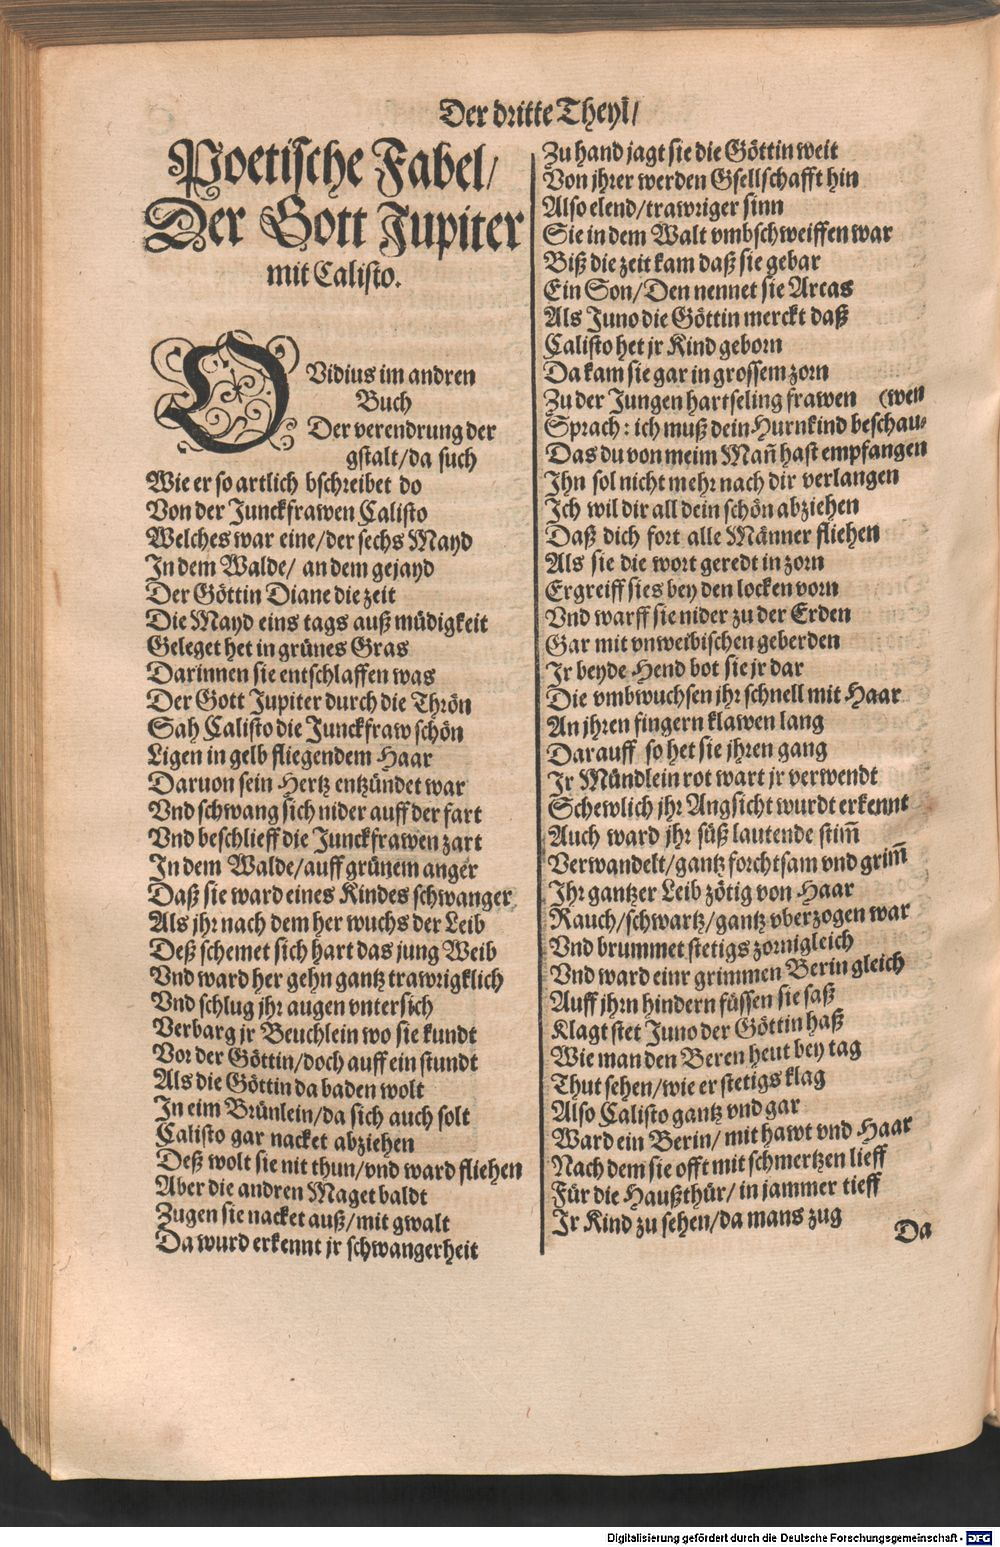 Der dritte Theyl/
Poetische Fabel/
Der Gott Jupiter
mit Calisto.
OVidius im andren
Buch
Der verendrung der
gstalt/da such
Wie er so artlich bschreibet do
Von der Junckfrawen Calisto
Welches war eine/der sechs Mayd
In dem Walde/ an dem gejayd
Der Göttin Diane die zeit
Die Mayd eins tags auß müdigkeit
Geleget het in grünes Gras
Darinnen sie entschlaffen was
Der Gott Jupiter durch die Thrön
Sah Calisto die Junckfraw schön
Ligen in gelb fliegendem Haar
Daruon sein Hertz entzündet war
Vnd schwang sich nider auff der fart
Vnd beschlieff die Junckfrawen zart
In dem Walde/auff grünem anger
Daß sie ward eines Kindes schwanger
Als jhr nach dem her wuchs der Leib
Deß schemet sich hart das jung Weib
Vnd ward her gehn gantz trawrigklich
Vnd schlug jhr augen vntersich
Verbarg jr Beuchlein wo sie kundt
Vor der Göttin/doch auff ein stundt
Als die Göttin da baden wolt
In eim Brünlein/da sich auch solt
Calisto gar nacket abziehen
Deß wolt sie nit thun/vnd ward fliehen
Aber die andren Maget baldt
Zugen sie nacket auß/mit gwalt
Da wurd erkennt jr schwangerheit
Zu hand jagt sie die Göttin weit
Von jhrer werden Gsellschafft hin
Also elend/trawriger sinn
Sie in dem Walt vmbschweiffen war
Biß die zeit kam daß sie gebar
Ein Son/Den nennet sie Arcas
Als Juno die Göttin merckt daß
Calisto het jr Kind geborn
Da kam sie gar in grossem zorn
Zu der Jungen hartseling frawen (wen
Sprach: ich muß dein Hurnkind beschau-
Das du von meim Mañ hast empfangen
Ihn sol nicht mehr nach dir verlangen
Ich wil dir all dein schön abziehen
Daß dich fort alle Männer fliehen
Als sie die wort geredt in zorn
Ergreiff sies bey den locken vorn
Vnd warff sie nider zu der Erden
Gar mit vnweibischen geberden
Ir beyde Hend bot sie jr dar
Die vmbwuchsen jhr schnell mit Haar
An jhren fingern klawen lang
Darauff so het sie jhren gang
Ir Mündlein rot wart jr verwendt
Schewlich jhr Angsicht wurdt erkennt
Auch ward jhr süß lautende stim̃
Verwandelt/gantz forchtsam vnd grim̃
Ihr gantzer Leib zötig von Haar
Rauch/schwartz/gantz vberzogen war
Vnd brummet stetigs zornigleich
Vnd ward einr grimmen Berin gleich
Auff jhrn hindern füssen sie saß
Klagt stet Juno der Göttin haß
Wie man den Beren heut bey tag
Thut sehen/wie er stetigs klag
Also Calisto gantz vnd gar
Ward ein Berin/ mit hawt vnd Haar
Nach dem sie offt mit schmertzen lieff
Für die Haußthür/ in jammer tieff
Ir Kind zu sehen/da mans zug
Da
Digitalisierung gefördert durch die Deutsche Forschungsgemeinschaft - DFG